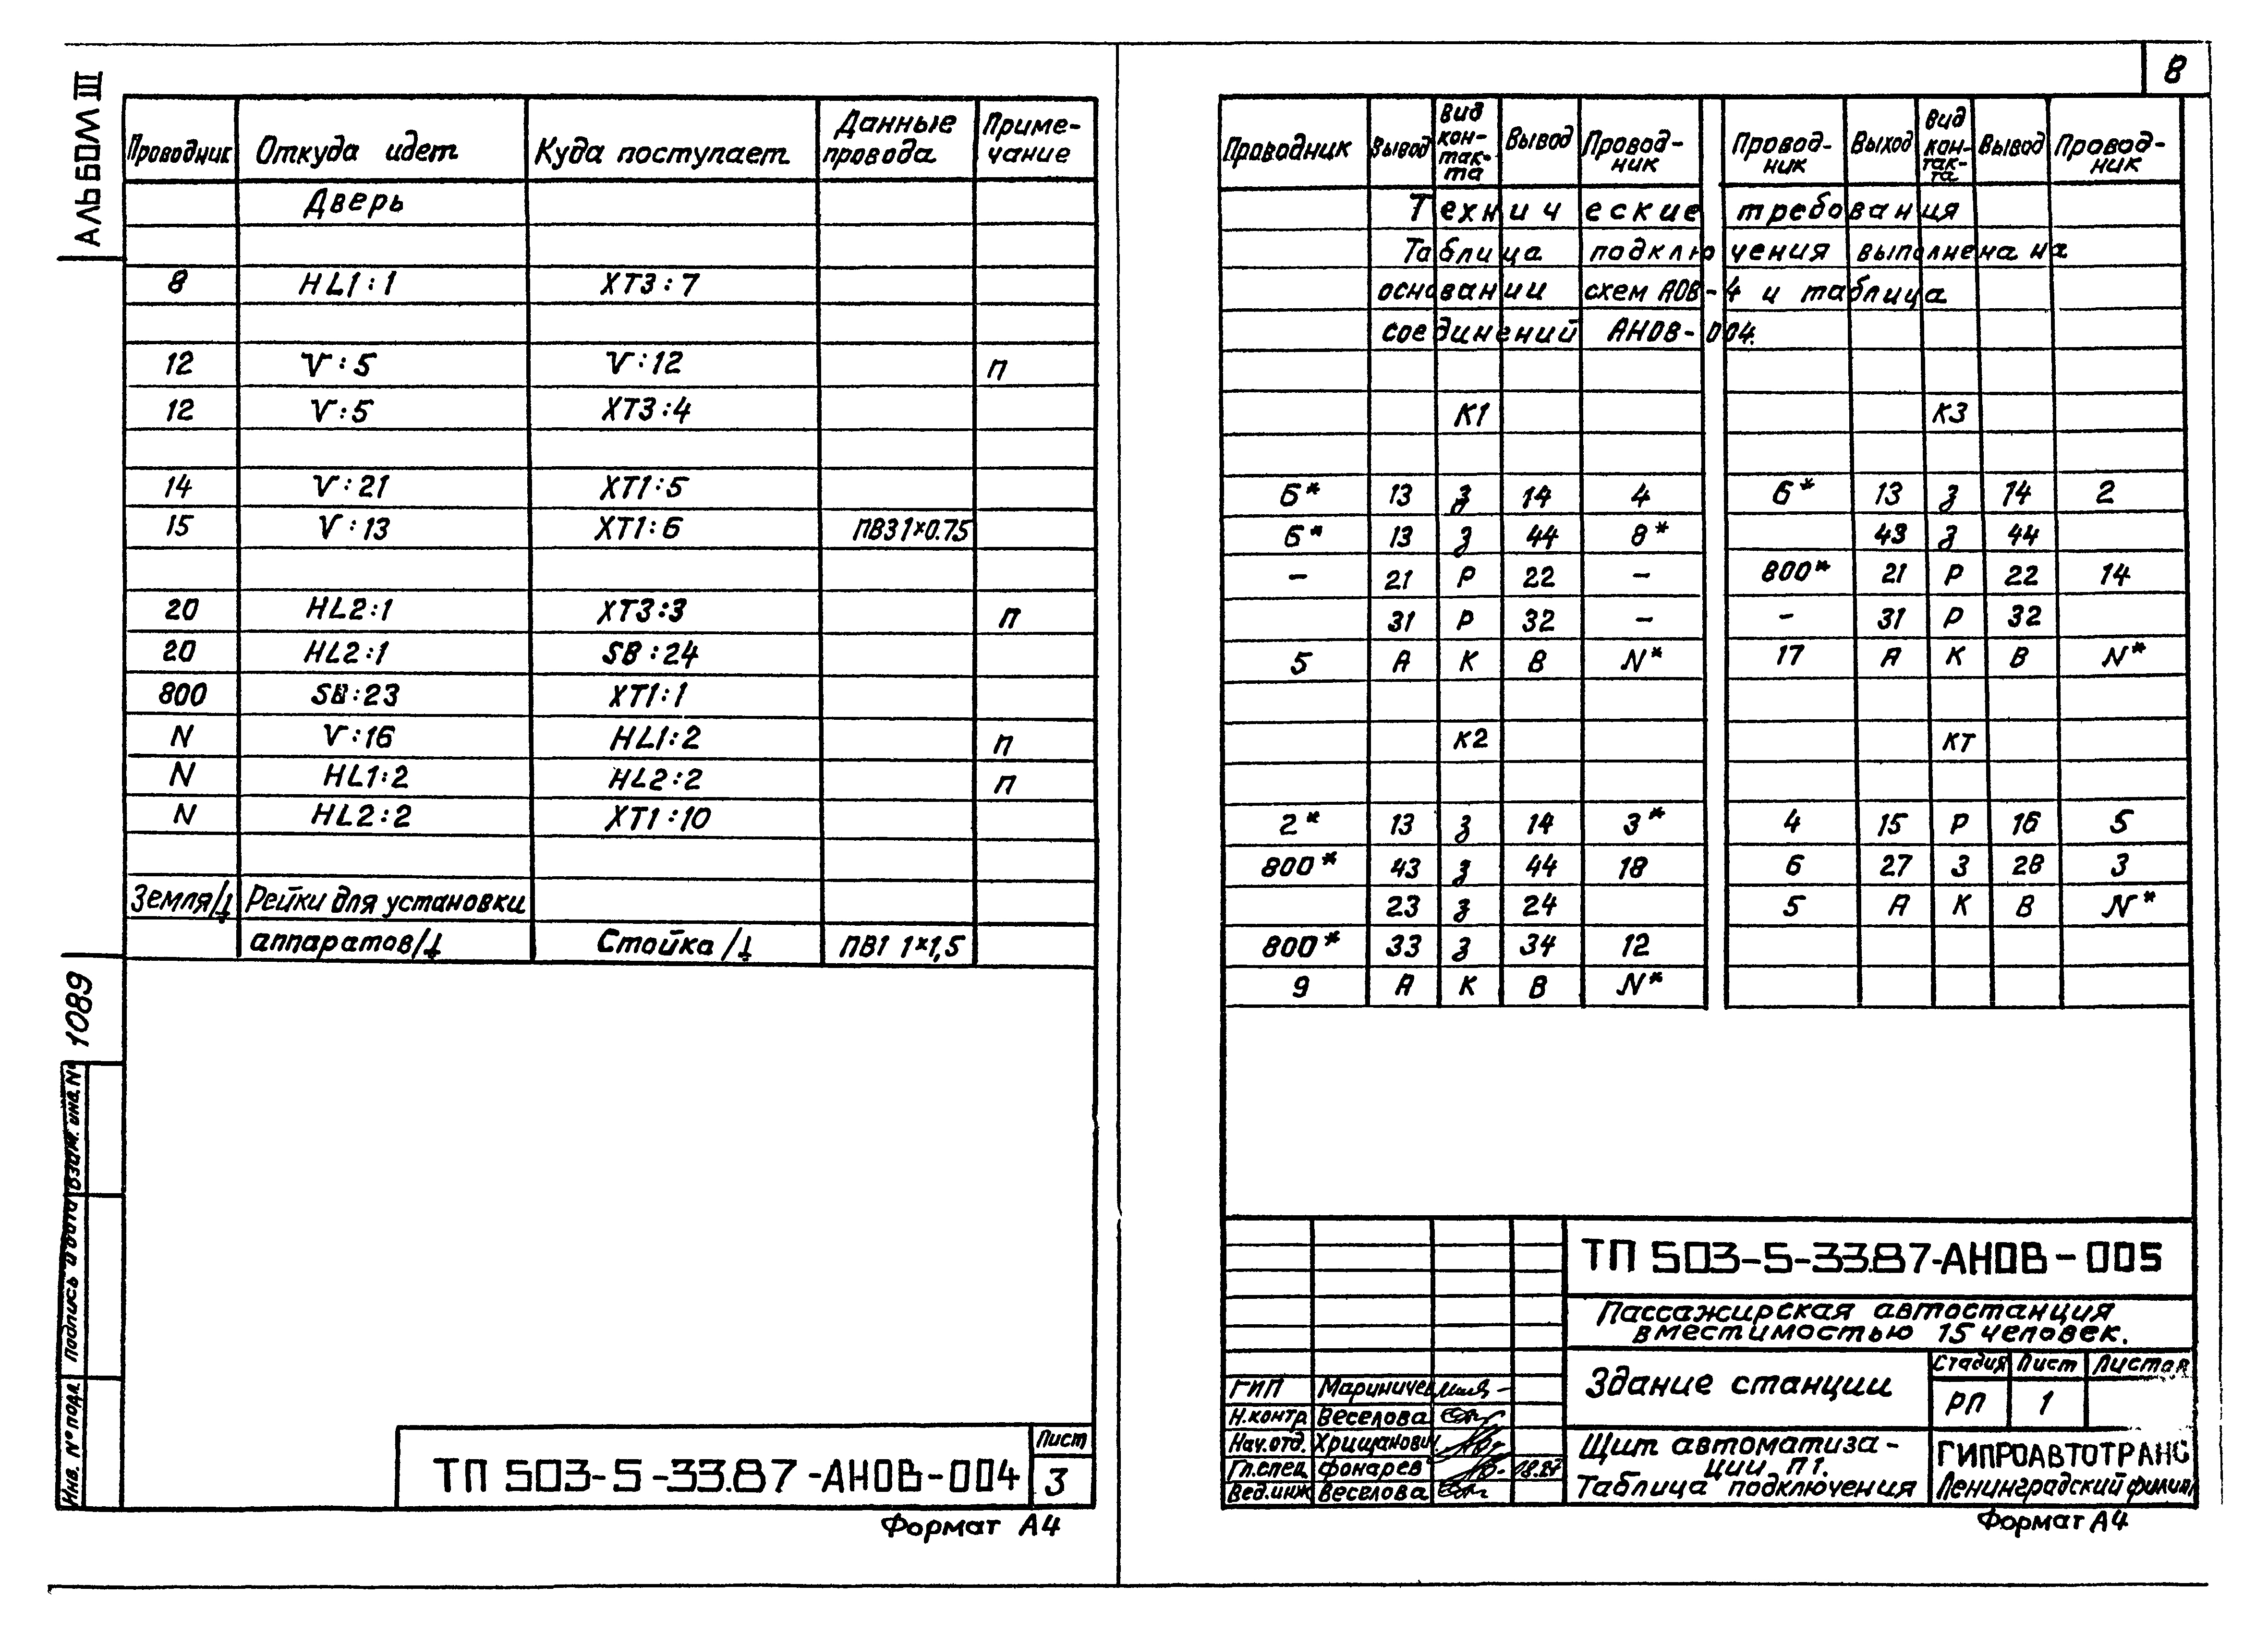 8
АЛЬБОМ III
Проводник Откуда идет Куда поступает Данные провода Приме-чание
Дверь
8 HL1:1 XT3:7
12 V:5 V:12 п
12 V:5 XT3:4
14 V:21 XT1:5
15 V:13 XT1:6 ПВ3 1×0.75
20 HL2:1 XT3:3 п
20 HL2:1 SB:24
800 SB:23 XT1:1
N V:16 HL1:2 п
N HL1:2 HL2:2 п
N HL2:2 XT1:10
Земля/⏚ Рейки для установки
аппаратов/⏚ Стойка/⏚ ПВ1 1×1,5
1089
Инв. № подл. Подпись и дата Взам. инв. №
ТП 503-5-33.87-АНОВ-004
Лист
3
Формат А4
Проводник Вывод Вид кон-так-та Вывод Провод-ник Провод-ник Выход Вид кон-так-та Вывод Провод-ник
Технические требования
Таблица подключения выполнена на
основании схем АОВ-4 и таблица
соединений АНОВ-004.
К1 К3
6* 13 з 14 4 6* 13 з 14 2
6* 13 з 44 8* 43 з 44
– 21 Р 22 – 800* 21 Р 22 14
31 Р 32 – – 31 Р 32
5 А К В N* 17 А К В N*
К2 КТ
2* 13 з 14 3* 4 15 Р 16 5
800* 43 з 44 18 6 27 З 28 3
23 з 24 5 А К В N*
800* 33 з 34 12
9 А К В N*
ТП 503-5-33.87-АНОВ-005
Пассажирская автостанция
вместимостью 15 человек.
Здание станции
Стадия Лист Листов
РП 1
ГИП Мариничев
Н.контр Веселова
Нач.отд. Хрищанович
Гл.спец Фонарев
Вед.инж Веселова
Щит автоматиза-
ции П1.
Таблица подключения
ГИПРОАВТОТРАНС
Ленинградский филиал
Формат А4